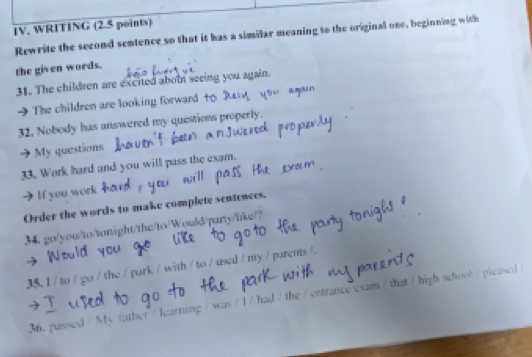 IV. WRITING (2.5 points)
Rewrite the second sentence so that it has a similar meaning to the original one, beginning with
the given words.
31. The children are excited about seeing you again.
→ The children are looking forward to you again
32. Nobody has answered my questions properly.
→ My questions haven't been answered properly.
33. Work hard and you will pass the exam.
→ If you work hard, you will pass the exam.
Order the words to make complete sentences.
34. go/you/to/tonight/the/to/Would/party/like/?
→ Would you go like to go to the party tonight?
35. I / to / go / the / park / with / to / used / my / parents /.
→ I used to go to the park with my parents
36. passed / My father / learning / was / I / had / the / entrance exam / that / high school / pleased /